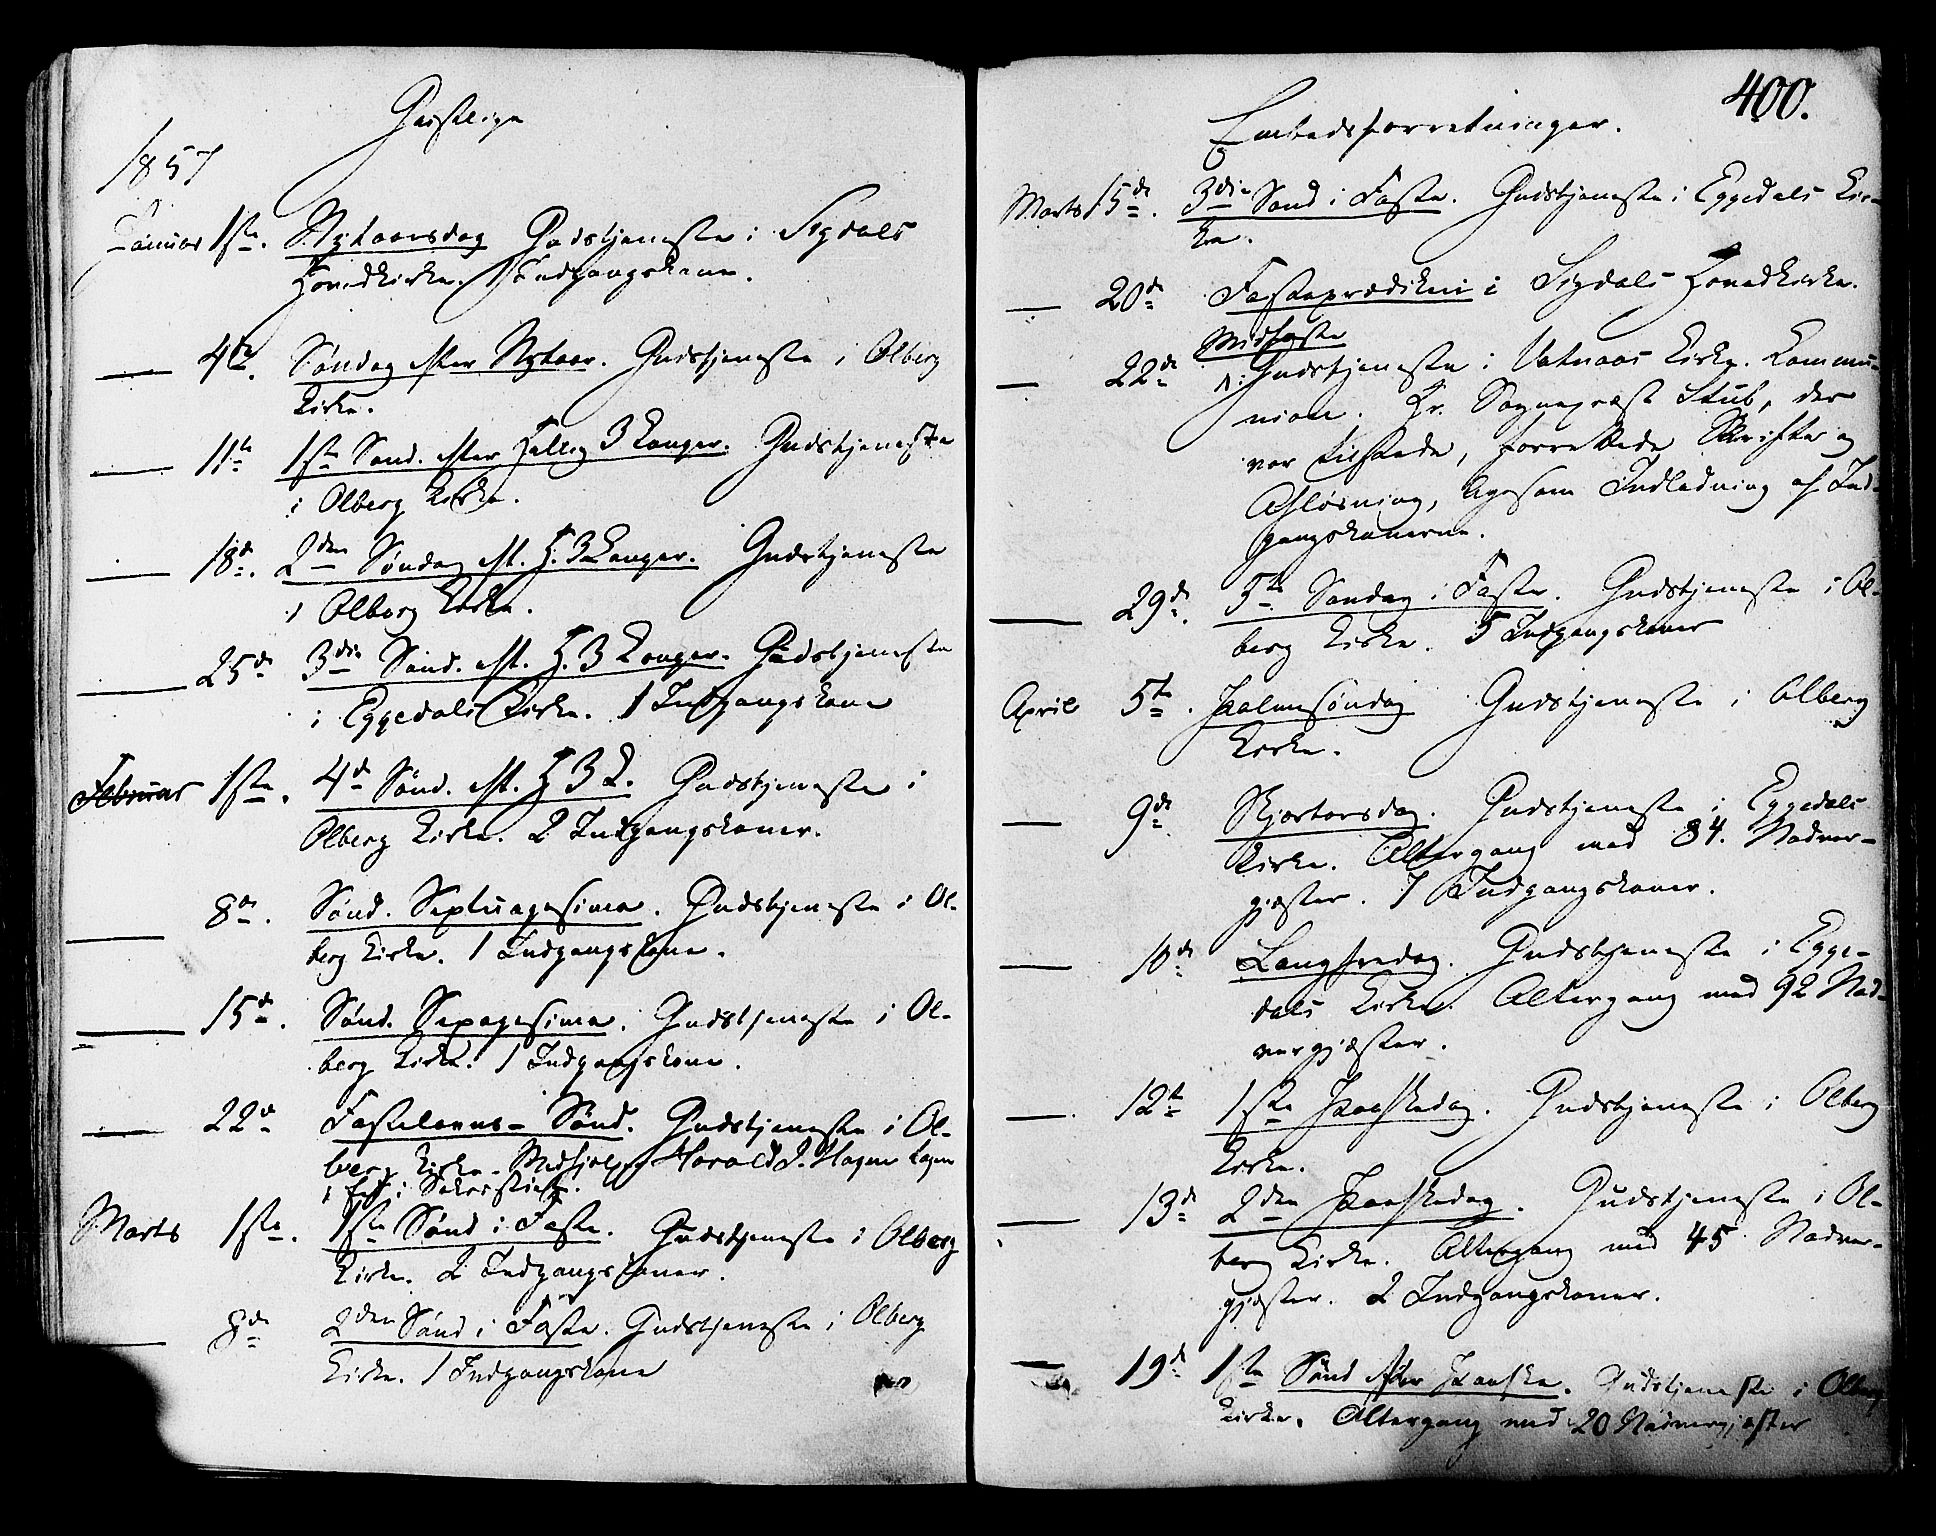 Geistlige
1857
Januar 1ste. Nytaarsdag Gudstjeneste i Sigdals
Hovedkirke. 1 Indgangskone.
— 4de. Søndag efter Nytaar. Gudstjeneste i Olberg
Kirke.
— 11te 1ste Sønd. efter Hellig 3 Konger. Gudstjeneste
i Olberg Kirke.
— 18de. 2den Søndag eft. H. 3 Konger. Gudstjeneste
i Olberg Kirke.
— 25de 3die Sønd. eft. H. 3 Konger. Gudstjeneste
i Eggedals Kirke. 1 Indgangskone
Februar 1ste. 4de Sønd. eft. H 3 K. Gudstjeneste i
Olberg Kirke. 2 Indgangskoner.
— 8de. Sønd. Septuagesima. Gudstjeneste i Ol-
berg Kirke. 1 Indgangskone.
— 15de. Sønd. Sexagesima. Gudstjeneste i Ol-
berg Kirke. 1 Indgangskone.
— 22de Fastelavns-Sønd. Gudstjeneste i Ol-
berg Kirke. Medhjelper Harald J. Hagen
i Sakristiet.
Marts 1ste. 1ste Sønd i Faste. Gudstjeneste i Olberg
Kirke. 2 Indgangskoner.
— 8de 2den Sønd i Faste. Gudstjeneste i Olberg
Kirke. 1 Indgangskone
400.
Embedsforretninger.
Marts 15de. 3die Sønd i Faste. Gudstjeneste i Eggedals Kir-
ke.
— 20de Fasteprædiken i Sigdals Hovedkirke.
Midfaste
— 22de Gudstjeneste i Vatnaas Kirke. Kommu-
nion. Hr. Sogneprest Stub, der
var tilstede, forrettede Skrifte og
Afløsning, ligesom Indledning af Ind-
gangskonerne.
— 29de. 5te Søndag i Faste. Gudstjeneste i Ol-
berg Kirke. 5 Indgangskoner
April 5te. Palmesøndag Gudstjeneste i Olberg
Kirke.
— 9de Skjærtorsdag. Gudstjeneste i Eggedals
Kirke. Altergang med 84. Nadver-
gjæster. 7 Indgangskoner.
— 10de Langfredag. Gudstjeneste i Egge-
dals Kirke. Altergang med 92 Nad-
vergjæster.
— 12te 1ste Paaskedag. Gudstjeneste i Olberg
Kirke.
— 13de 2den Paaskedag. Gudstjeneste i Ol-
berg Kirke. Altergang med 45 Nadver-
gjæster. 2 Indgangskoner.
— 19de 1ste Sønd efter Paaske. Gudstjeneste i Olberg
Kirke. Altergang med 20 Nadvergjæster